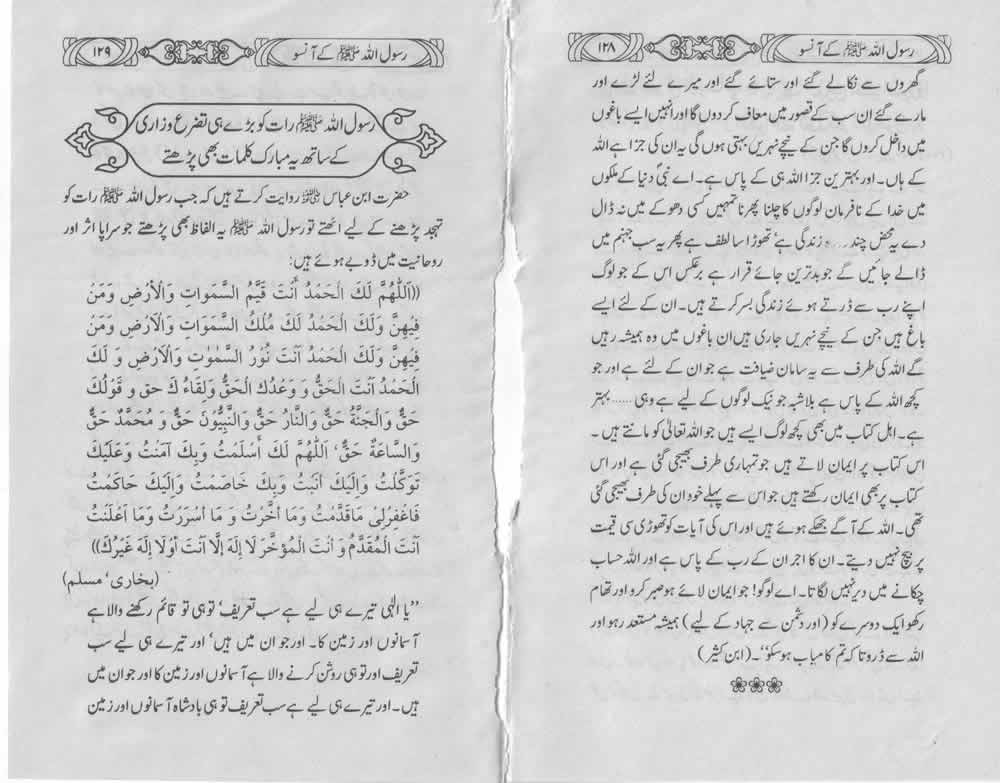 رسول اللہ ﷺ کے آنسو ۱۲۸
گھروں سے نکالے گئے اور ستائے گئے اور میرے لئے لڑے اور
مارے گئے ان سب کے قصور میں معاف کر دوں گا اور انہیں ایسے باغوں
میں داخل کروں گا جن کے نیچے نہریں بہتی ہوں گی یہ ان کی جزا ہے اللہ
کے ہاں۔ اور بہترین جزا اللہ ہی کے پاس ہے۔ اے نبیؐ دنیا کے ملکوں
میں خدا کے نافرمان لوگوں کا چلنا پھرنا تمہیں کسی دھوکے میں نہ ڈال
دے یہ محض چند ... زندگی ہے تھوڑا سا لطف ہے پھر یہ سب جہنم میں
ڈالے جائیں گے جو بدترین جائے قرار ہے برعکس اس کے جو لوگ
اپنے رب سے ڈرتے ہوئے زندگی بسر کرتے ہیں۔ ان کے لئے ایسے
باغ ہیں جن کے نیچے نہریں جاری ہیں ان باغوں میں وہ ہمیشہ رہیں
گے اللہ کی طرف سے یہ سامان ضیافت ہے جو ان کے لئے ہے اور جو
کچھ اللہ کے پاس ہے بلاشبہ جو نیک لوگوں کے لیے ہے وہی ...... بہتر
ہے۔ اہل کتاب میں بھی کچھ لوگ ایسے ہیں جو اللہ تعالیٰ کو مانتے ہیں۔
اس کتاب پر ایمان لاتے ہیں جو تمہاری طرف بھیجی گئی ہے اور اس
کتاب پر بھی ایمان رکھتے ہیں جو اس سے پہلے خود ان کی طرف بھیجی گئی
تھی۔ اللہ کے آگے جھکے ہوئے ہیں اور اس کی آیات کو تھوڑی سی قیمت
پر بیچ نہیں دیتے۔ ان کا اجر ان کے رب کے پاس ہے اور اللہ حساب
چکانے میں دیر نہیں لگاتا۔ اے لوگو! جو ایمان لائے ہو صبر کرو اور تھام
رکھو ایک دوسرے کو (اور دشمن سے جہاد کے لیے) ہمیشہ مستعد رہو اور
اللہ سے ڈرو تا کہ تم کامیاب ہو سکو‘‘۔ (ابن کثیر)
رسول اللہ ﷺ کے آنسو ۱۲۹
رسول اللہ ﷺ رات کو بڑے ہی تضرع وزاری
کے ساتھ یہ مبارک کلمات بھی پڑھتے
حضرت ابن عباس ؓ روایت کرتے ہیں کہ جب رسول اللہ ﷺ رات کو
تہجد پڑھنے کے لیے اٹھتے تو رسول اللہ ﷺ یہ الفاظ بھی پڑھتے جو سراپا اثر اور
روحانیت میں ڈوبے ہوئے ہیں:
((اَللّٰهُمَّ لَكَ الْحَمْدُ أَنْتَ قَيِّمُ السَّمٰوَاتِ وَالْاَرْضِ وَمَنْ
فِيْهِنَّ وَلَكَ الْحَمْدُ لَكَ مُلْكُ السَّمٰوَاتِ وَالْاَرْضِ وَمَنْ
فِيْهِنَّ وَلَكَ الْحَمْدُ اَنْتَ نُوْرُ السَّمٰوٰتِ وَالْاَرْضِ وَ لَكَ
الْحَمْدُ اَنْتَ الْحَقُّ وَ وَعْدُكَ الْحَقُّ وَلِقَاءُ كَ حق و قَوْلُكَ
حَقٌّ وَالْجَنَّةُ حَقٌّ وَالنَّارُ حَقٌّ وَالنَّبِيُّوْنَ حَقٌّ وَ مُحَمَّدٌ حَقٌّ
وَالسَّاعَةُ حَقٌّ، اَللّٰهُمَّ لَكَ أَسْلَمْتُ وَبِكَ آمَنْتُ وَعَلَيْكَ
تَوَكَّلْتُ وَاِلَيْكَ اَنَبْتُ وَبِكَ خَاصَمْتُ وَاِلَيْكَ حَاكَمْتُ
فَاغْفِرْلِىْ مَاقَدَّمْتُ وَمَا اَخَّرْتُ وَ مَا اَسْرَرْتُ وَمَا اَعْلَنْتُ
اَنْتَ الْمُقَدِّمُ وَ اَنْتَ الْمُؤَخِّرُ لَا اِلٰهَ اِلَّا اَنْتَ اَوْلَا اِلٰهَ غَيْرُكَ))
(بخاری‘ مسلم)
’’یا الٰہی تیرے ہی لیے ہے سب تعریف‘ تو ہی تو قائم رکھنے والا ہے
آسمانوں اور زمین کا۔ اور جو ان میں ہیں‘ اور تیرے ہی لیے سب
تعریف اور تو ہی روشن کرنے والا ہے آسمانوں اور زمین کا اور جو ان میں
ہیں۔ اور تیرے ہی لیے ہے سب تعریف تو ہی بادشاہ آسمانوں اور زمین